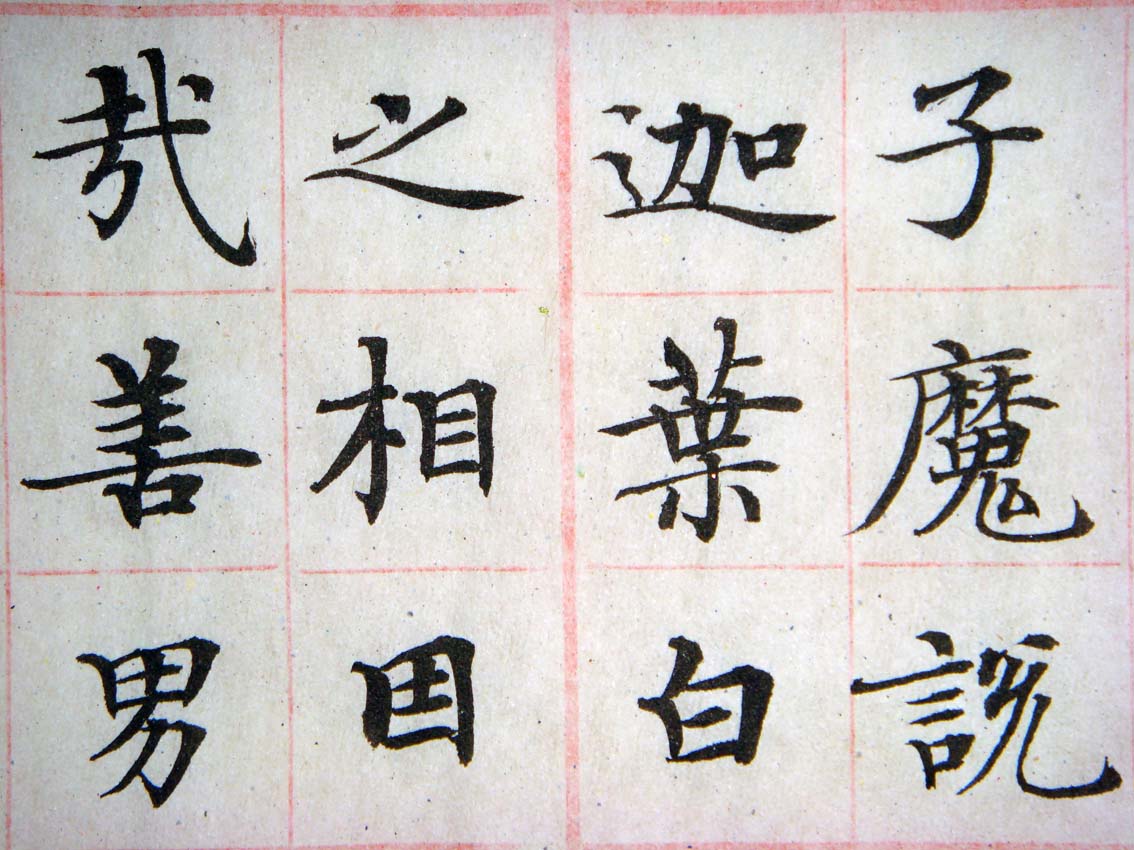 子魔說
迦葉白
之相因
哉善男